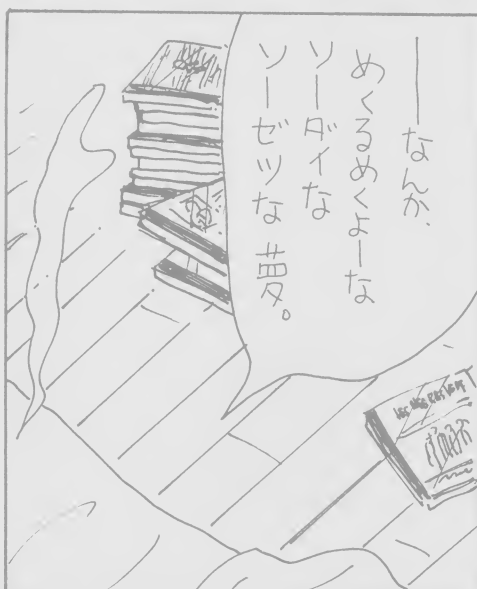 ──なんか、
めくるめくよーな
ソーダイな
ソーゼツな夢。